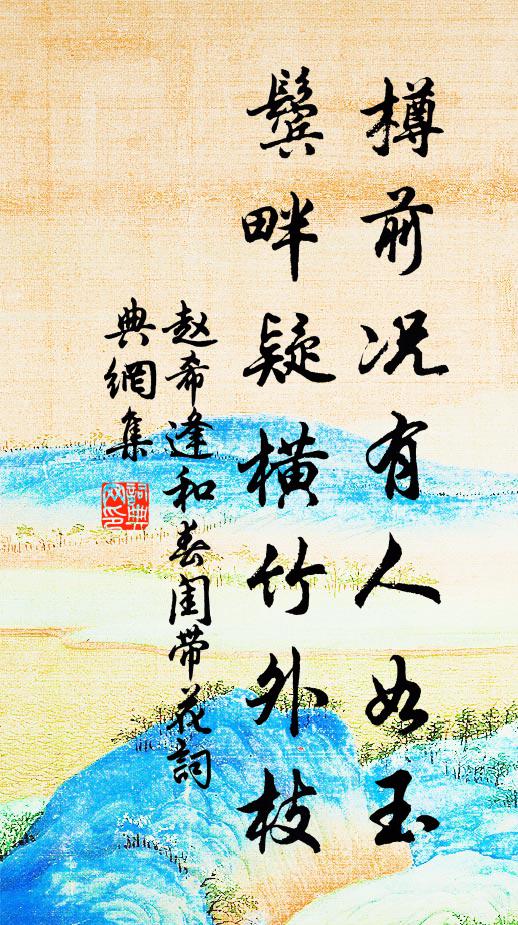 樽前况有人如玉
鬓畔疑横竹外枝
赵希逢和春闺带花詞
典網集
詞典网印